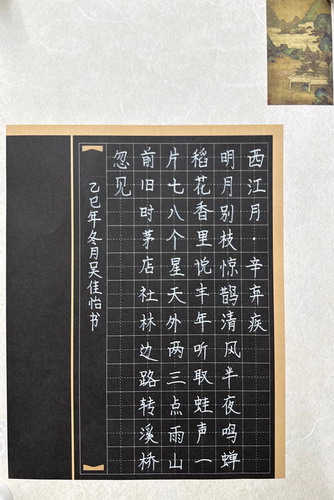 西江月·辛弃疾
明月别枝惊鹊清风半夜鸣蝉
稻花香里说丰年听取蛙声一
片七八个星天外两三点雨山
前旧时茅店社林边路转溪桥
忽见
乙巳年冬月吴佳怡书